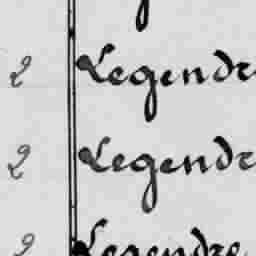 2 Legendr
2 Legendr
2 Legendre